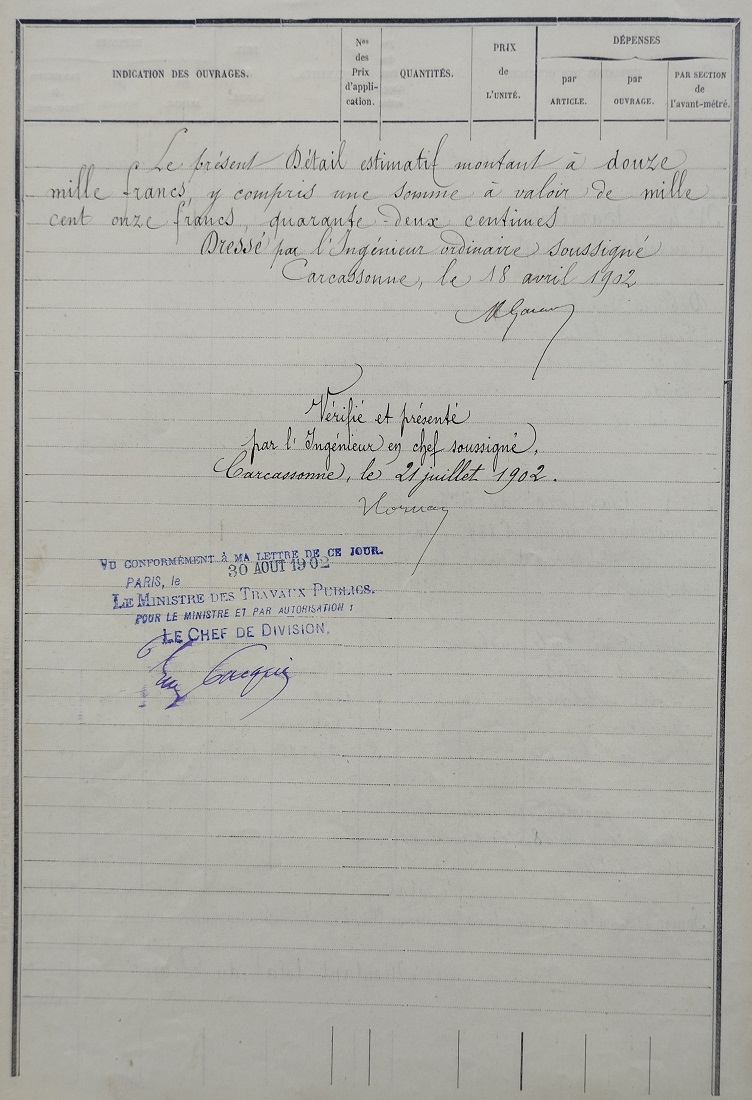 INDICATION DES OUVRAGES.
Nos
des
Prix
d'appli-
cation.
QUANTITÉS.
PRIX
de
L'UNITÉ.
DÉPENSES
par
ARTICLE.
par
OUVRAGE.
PAR SECTION
de
l'avant-métré.
Le présent Détail estimatif montant à douze
mille francs, y compris une somme à valoir de mille
cent onze francs, quarante-deux centimes
Dressé par l'Ingénieur ordinaire soussigné
Carcassonne, le 18 avril 1902
Vérifié et présenté
par l'Ingénieur en chef soussigné,
Carcassonne, le 21 juillet 1902.
VU CONFORMÉMENT à MA LETTRE DE CE JOUR.
PARIS, le 30 AOUT 1902
LE MINISTRE DES TRAVAUX PUBLICS.
POUR LE MINISTRE ET PAR AUTORISATION :
LE CHEF DE DIVISION,